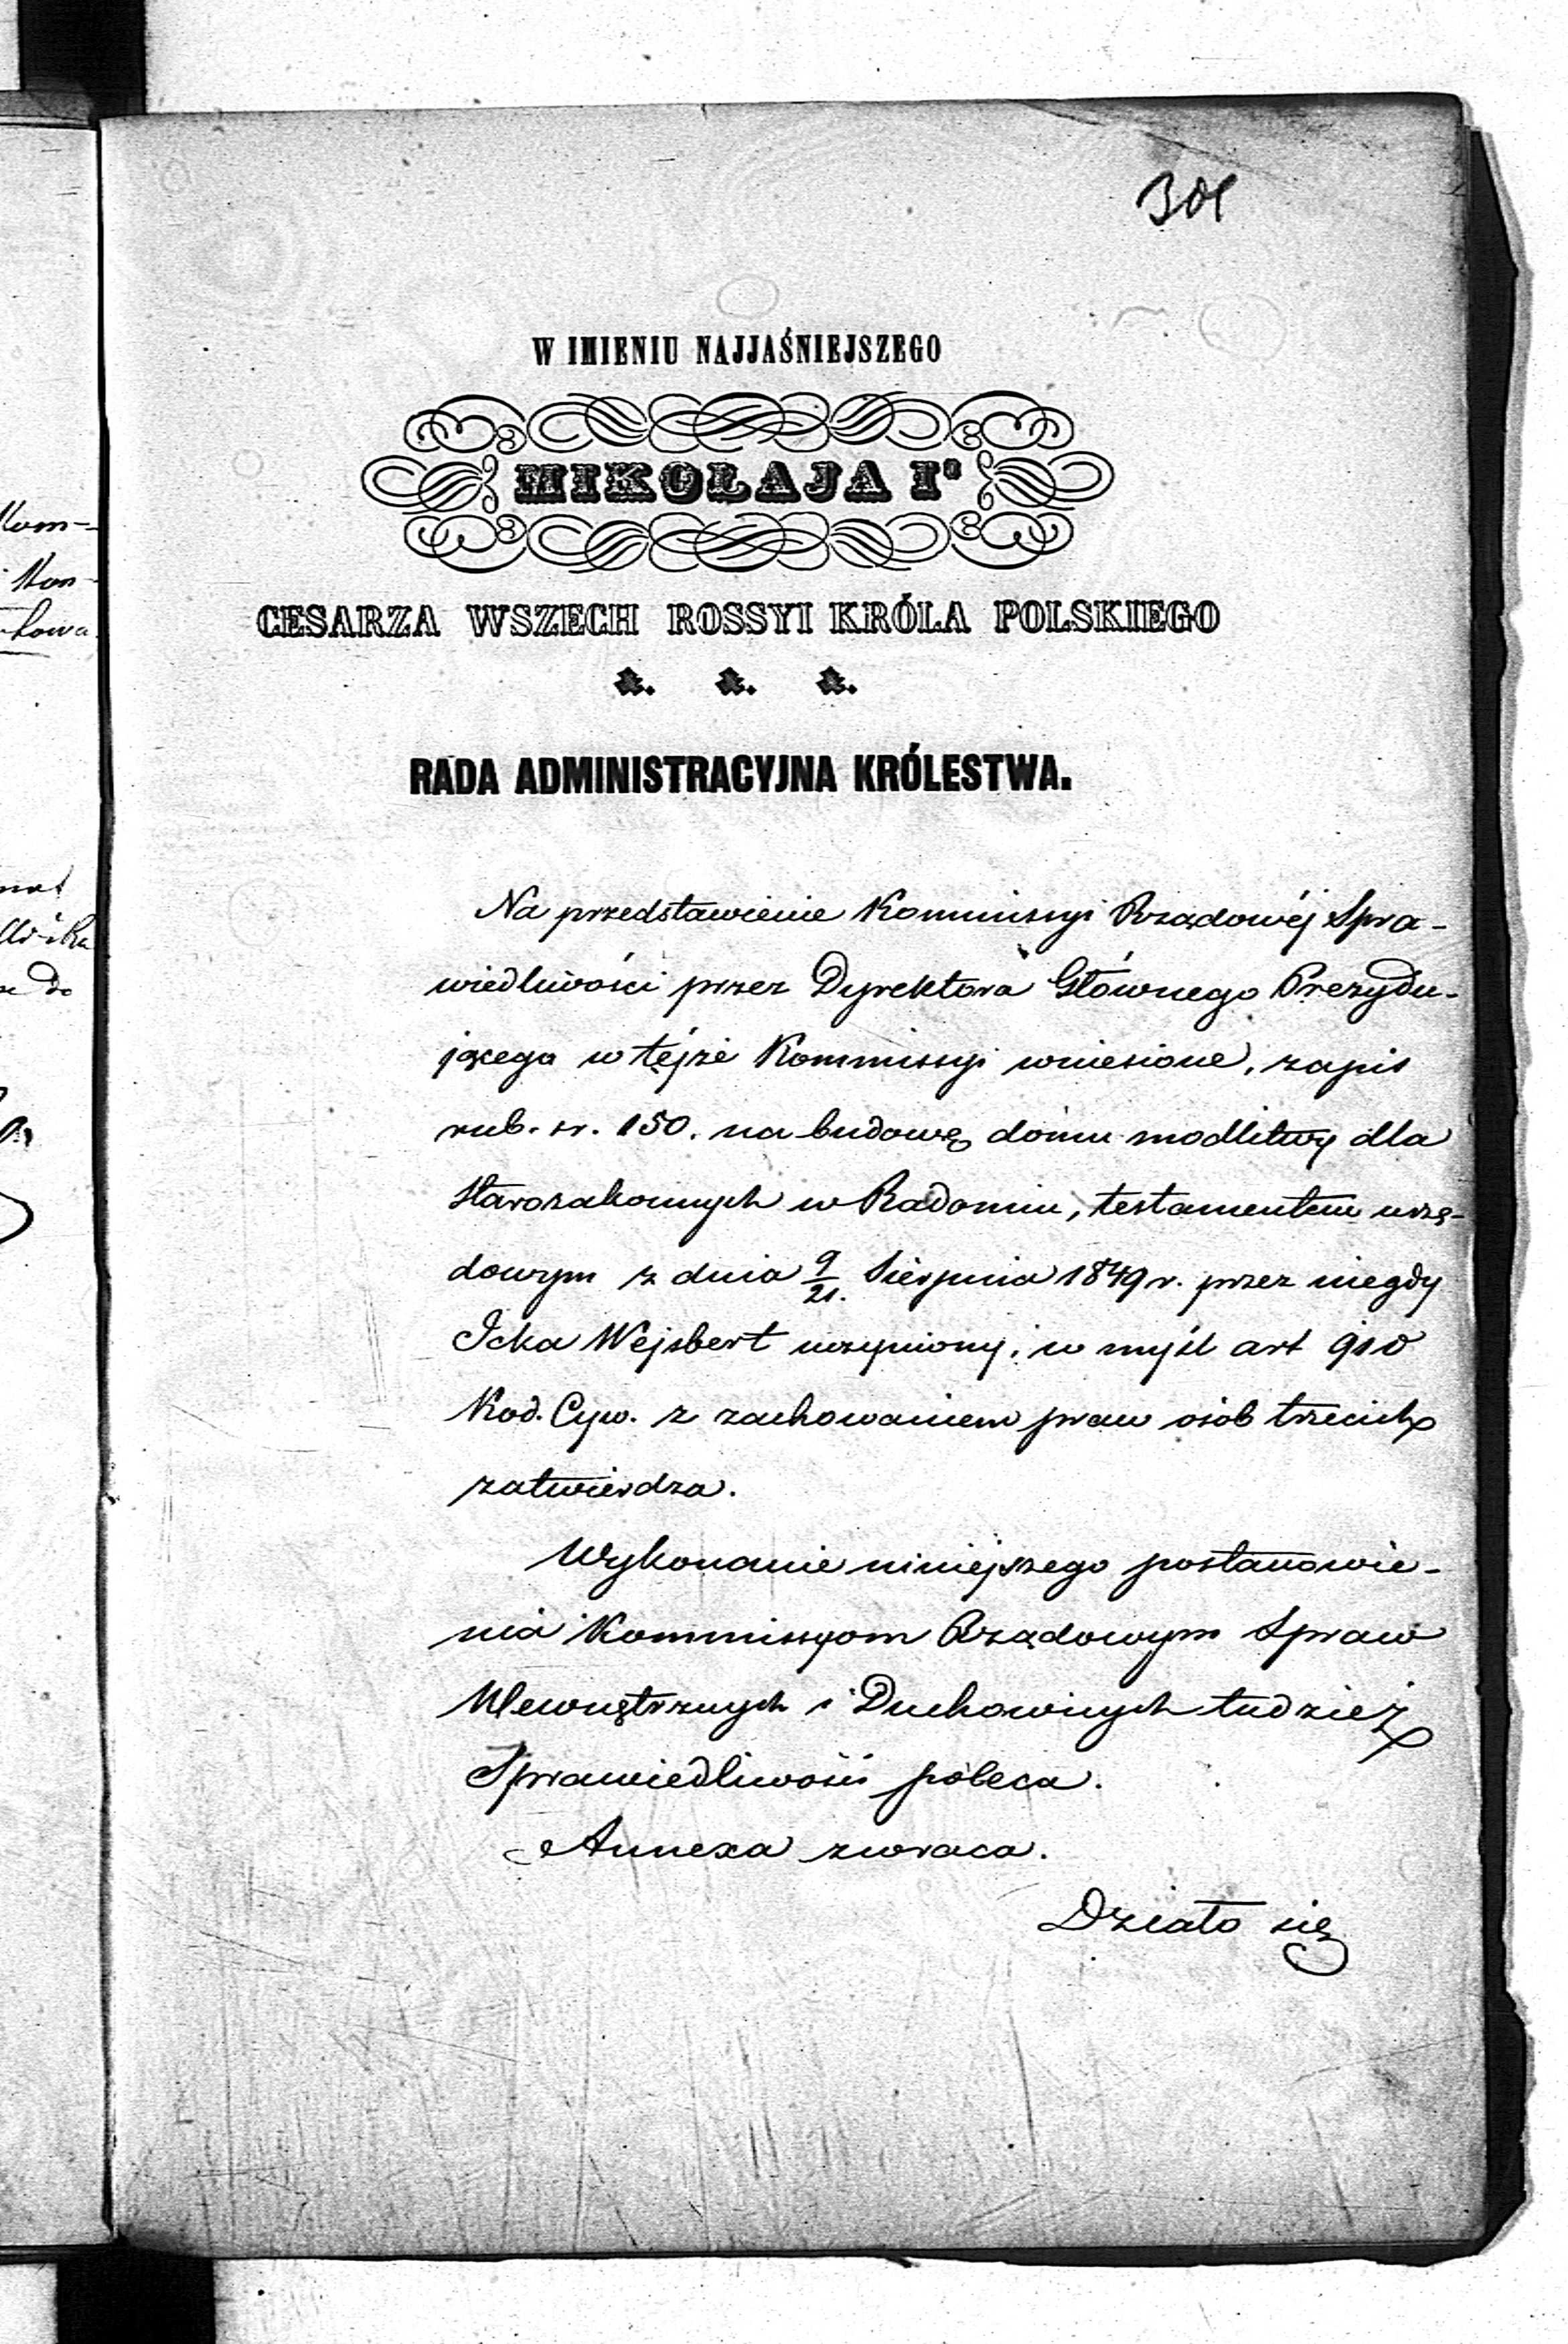 301
W IMIENIU NAJJAŚNIEJSZEGO
MIKOŁAJA Iº
CESARZA WSZECH ROSSYI KRÓLA POLSKIEGO
&. &. &.
RADA ADMINISTRACYJNA KRÓLESTWA.
Na przedstawienie Kommissyi Rządowéj Spra-
wiedliwości przez Dyrektora Głównego Prezydu-
jącego w téjże Kommissyi wniesione, zapis
rub. sr. 150. na budowę domu modlitwy dla
Starozakonnych w Radomiu, testamentem urzę-
dowym z dnia 9/21. Sierpnia 1849 r. przez niegdy
Icka Wejsbert uczyniony, w myśl art 910
Kod. Cyw. z zachowaniem praw osób trzecich
zatwierdza.
Wykonanie niniejszego postanowie-
nia Kommissyom Rządowym Spraw
Wewnętrznych i Duchownych tudzież
Sprawiedliwości poleca.
Annexa zwraca.
Działo się